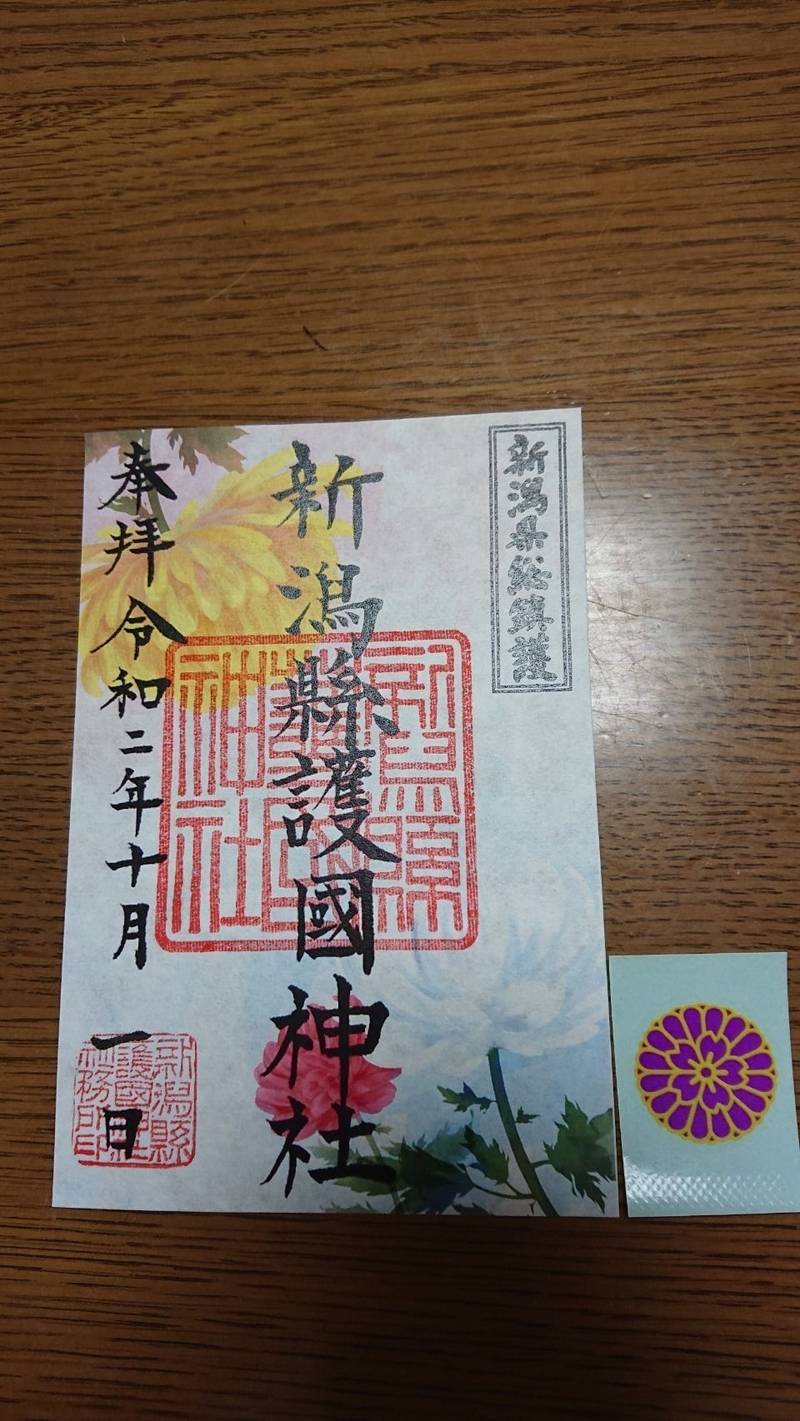 新潟県総鎮護
新潟縣護國神社
奉拝 令和二年十月一日
新潟縣
護國
神社
新潟縣
護國神社
社務所印